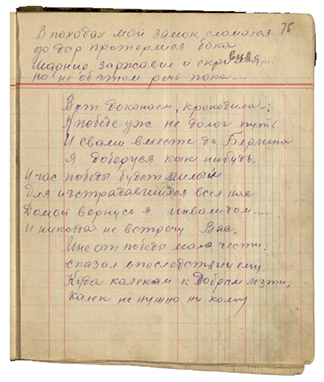 75
В походах мой замок сломался
до дыр протёрлися бока
Шарнир заржавил и
но не об этом речь пока....
Вот доконали, крокодила:
К победе уж не долог путь
И с вами вместе до Берлина
Я доберуся как нибудь,
И час победы будет милый
Для исстрадавшихся всех нас
Домой вернуся я инвалидом.....
И никогда не встречу Вас,
Мне от победы мало чести
сказал впоследствии ему.
Куда калекам к Добрым лезти,
Калек не нужно ни кому